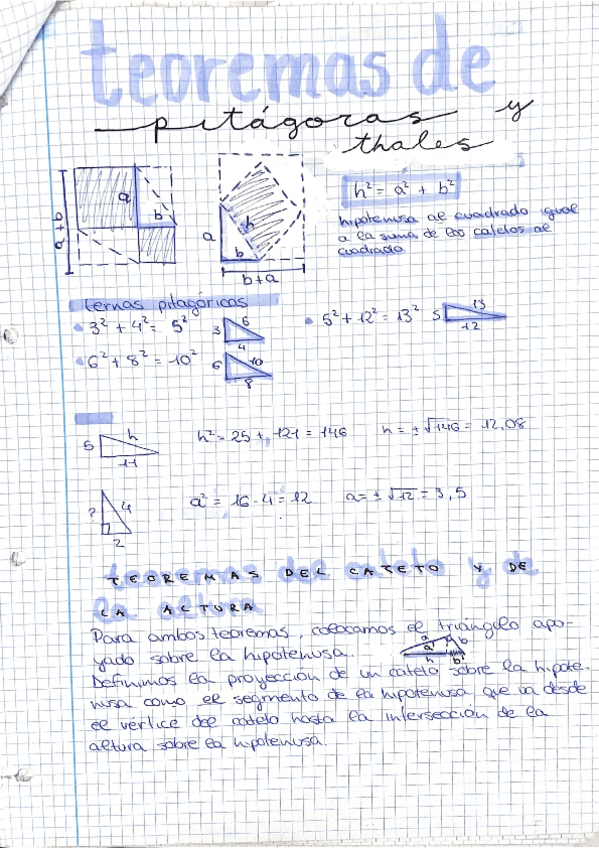 teoremas de
pitágoras y
thales
a
b
a + b
a
h
b
b+a
h² = a² + b²
hipotenusa al cuadrado igual
a la suma de los catetos al
cuadrado
ternas pitagóricas
3² + 4² = 5²
3
4
6² + 8² = 10²
6
10
8
5² + 12² = 13²
5
13
12
5
h
11
h² = 25 + 121 = 146
h = ± √146 = 12,08
?
4
2
a² = 16 - 4 = 12
a = ± √12 = 3,5
TEOREMAS DEL CATETO Y DE
LA ALTURA
Para ambos teoremas, colocamos el triángulo apo-
yado sobre la hipotenusa.
a
b
h
b'
Definimos la proyección de un cateto sobre la hipote-
nusa como el segmento de la hipotenusa que va desde
el vértice del cateto hasta la intersección de la
altura sobre la hipotenusa.